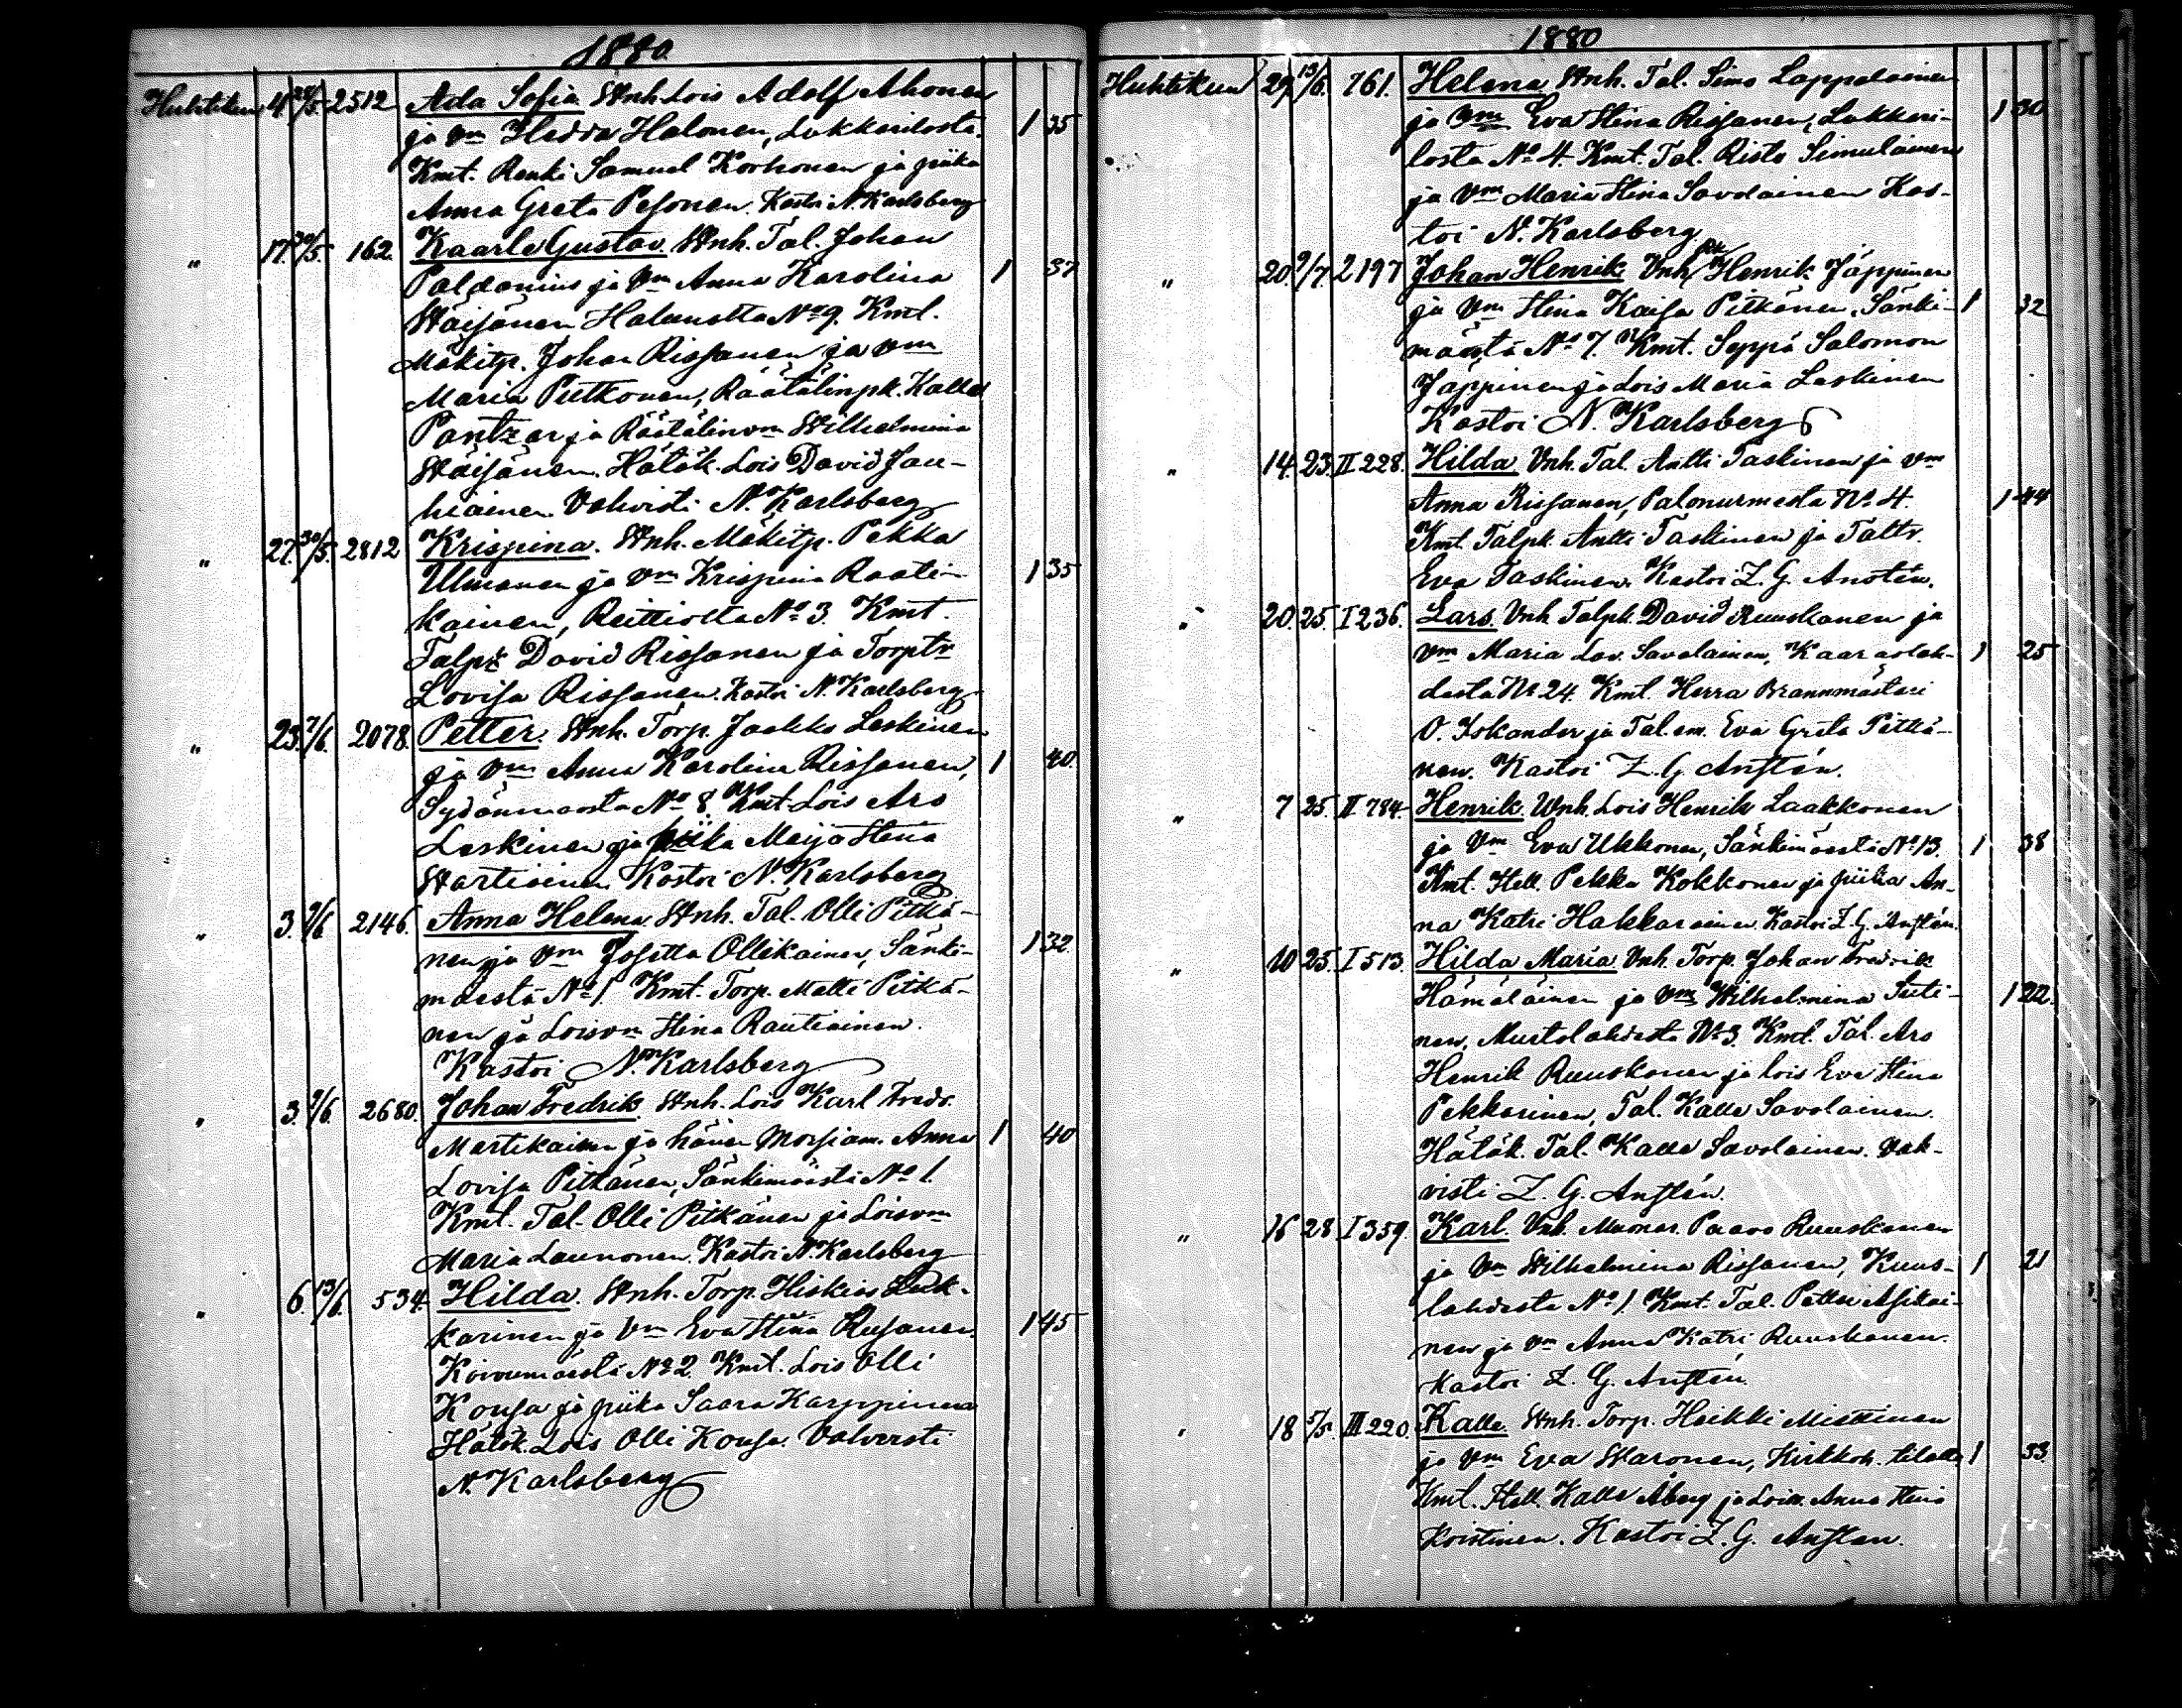 1880
Huhtikuu 4. 28/5. 2512 Ada Sofia. Wnh. Lois Adolf Ahonen
ja vm Hedda Halonen, Lukkarilasta. 1 35
Kmt. Renki Samuel Korhonen ja piika
Anna Greta Pesonen. Kastoi N. Karlsberg
„ 17. 30/5. 162. Kaarle Gustav. Wnh. Tal. Johan
Paldanius ja vm Anna Karolina 1 37
Wäisänen Halunalta No 9. Kmt.
Mäkitp. Johan Rissanen ja vm
Maria Putkonen, Räätälinpk. Kalle
Pantzar ja Räätälinvm Wilhelmina
Wäisänen. Hätäk. Lois David Jau-
hiainen Vahvisti N. Karlsberg
„ 27. 30/5. 2812 Krispina. Wnh. Mäkitp. Pekka
Ulmanen ja vm Krispina Raati- 1 35
kainen, Reittiolta No 3. Kmt.
Talpk David Rissanen ja Torptr
Lovisa Rissanen. Kastoi N. Karlsberg
„ 23. 7/6. 2078. Petter. Wnh. Torp. Jaakko Leskinen
ja vm Anna Karolina Rissanen, 1 40.
Sydänmaasta No 8. Kmt. Lois Aro
Leskinen ja piika Maija Stina
Wartiainen Kastoi N. Karlsberg
„ 3. 9/6 2146. Anna Helena. Wnh. Tal. Olli Pitkä-
nen ja vm Josetta Ollikainen, Sänki- 1 32.
mäestä No 1. Kmt. Torp. Matti Pitkä-
nen ja Loisvm Stina Rautiainen.
Kastoi N. Karlsberg
„ 3. 9/6 2680. Johan Fredrik. Wnh. Lois Karl Fredr.
Martikainen ja hänen Morsiam. Anna 1 40
Lovisa Pitkänen, Sänkimäestä No 1.
Kmt. Tal. Olli Pitkänen ja Loisvm
Maria Launonen. Kastoi N. Karlsberg
„ 6. 13/6. 534. Hilda. Wnh. Torp. Hiskias Luk-
karinen ja vm Eva Stina Rusanen. 1 45
Koivumäestä No 2. Kmt. Lois Olli
Kousa ja piika Saara Karppinen
Hätäk. Lois Olli Kousa. Vahvisti
N. Karlsberg
1880
Huhtikuu 29. 13/6. 761. Helena Wnh. Tal. Simo Lappalainen
ja vm Eva Stina Rissanen, Lukkari- 1 30
lasta No 4. Kmt. Tal. Risto Simulainen
ja vm Maria Stina Savolainen Kas-
toi N. Karlsberg
„ 20. 9/7. 2197 Johan Henrik Vnh. Henrik Jäppinen
ja vm Stina Kaisa Pitkänen, Sänki- 1 32
mäestä No 7. Kmt. Seppä Salomon
Jäppinen ja Lois Maria Laskinen
Kastoi N. Karlsberg
„ 14. 23. II 228. Hilda Vnh. Tal. Antti Taskinen ja vm
Anna Rissanen, Palonurmesta No 4. 1 44
Kmt. Talpk. Antti Taskinen ja Taltr.
Eva Taskinen. Kastoi Z. G. Anstén.
„ 20. 25. I 236. Lars. Vnh. Talpk. David Ruuskanen ja
vm Maria Lov. Savolainen, Kaaraslah- 1 25
desta No 24. Kmt. Herra Brannmästari
O. Iskander ja Tal. em. Eva Greta Pitkä-
nen. Kastoi Z. G. Anstén.
„ 7 25. II 784. Henrik. Wnh. Lois Henrik Laakkonen
ja vm Eva Ukkonen, Sänkimäestä No 13. 1 38
Kmt. Itell. Pekka Kokkonen ja piika An-
na Katri Hakkarainen. Kastoi Z. G. Anstén.
„ 10 25. I 513. Hilda Maria. Vnh. Torp. Johan Fredrik
Hämäläinen ja vm Wilhelmina Suti- 1 22.
nen, Mustolahdesta No 3. Kmt. Tal. Aro
Henrik Ruuskanen ja Lois Eva Stina
Pekkarinen, Tal. Kalle Savolainen.
Hätäk. Tal. Kalle Savolainen. Vah-
visti Z. G. Anstén.
„ 16 28 I 359. Karl. Vnh. Muonar. Paavo Ruuskanen
ja vm Wilhelmina Rissanen, Kuus- 1 21
lahdesta No 1. Kmt. Tal. Petter Asikai-
nen ja vm Anna Katri Ruuskanen.
Kastoi Z. G. Anstén.
„ 18 5/5. III 220. Kalle. Wnh. Torp. Heikki Miettinen
ja vm Eva Waronen, Kirkkoh. tilalta 1 33.
Kmt. Itell. Kalle Åberg ja Lois. Anna Stina
Koistinen. Kastoi Z. G. Anstén.